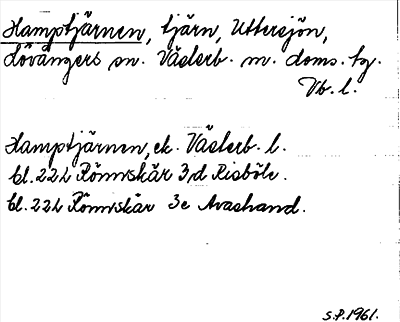 Hamptjärnen, tjärn, Uttersjön,
Lövångers sn. Västerb. m. doms. tg.
Vb. l.
Hamptjärnen, ek. Västerb. l.
bl. 22L Rönnskär 3d Risböle.
bl. 22L Rönnskär 3e Avashand.
S.P. 1961.